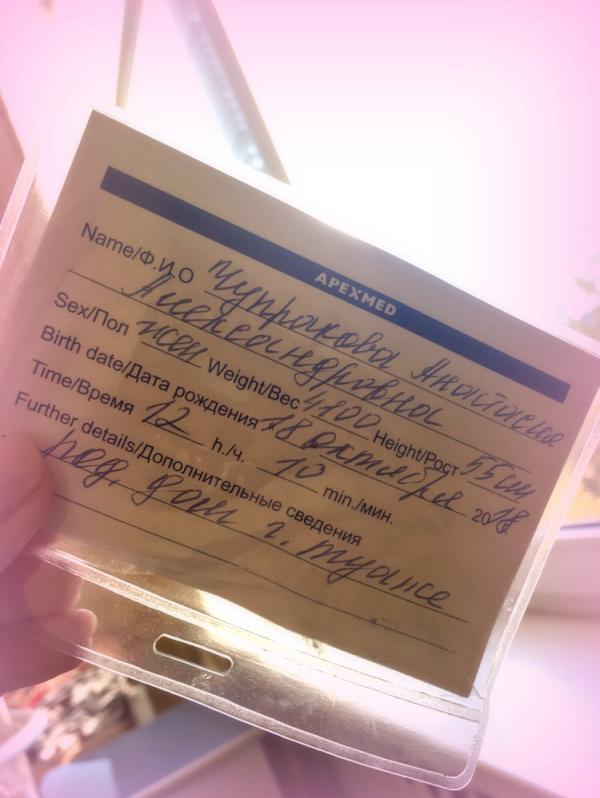 APEXMED
Name/Ф.И.О Чупракова Анастасия
Александровна
Sex/Пол жен Weight/Вес 4100 Height/Рост 55 см
Birth date/Дата рождения 18 октября 2018
Time/Время 12 h./ч. 10 min./мин.
Further details/Дополнительные сведения
род. дом г. Туапсе